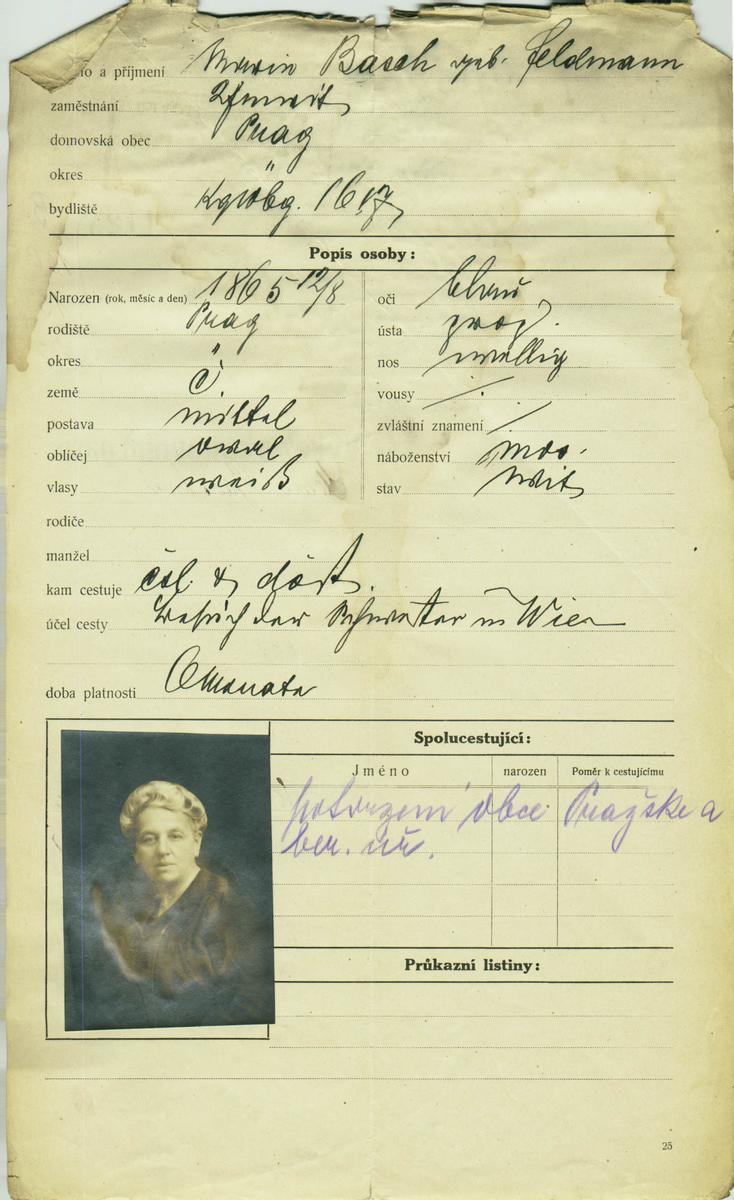 o a příjmení Marie Basch geb. Feldmann
zaměstnání
domovská obec Prag
okres "
bydliště Kgwbg. 1617
Popis osoby:
Narozen (rok, měsíc a den) 1865 12/8
rodiště Prag
okres "
země Č
postava mittel
obličej oval
vlasy weiß
oči blau
ústa prop.
nos wellig
vousy /
zvláštní znamení /
náboženství mos.
stav Wit
rodiče
manžel
kam cestuje čsl. &
účel cesty Besuch der Schwester in Wien
doba platnosti 6 Monate
Spolucestující:
Jméno narozen Poměr k cestujícímu
Potvrzení obce Pražske a
ber. úř.
Průkazní listiny:
25